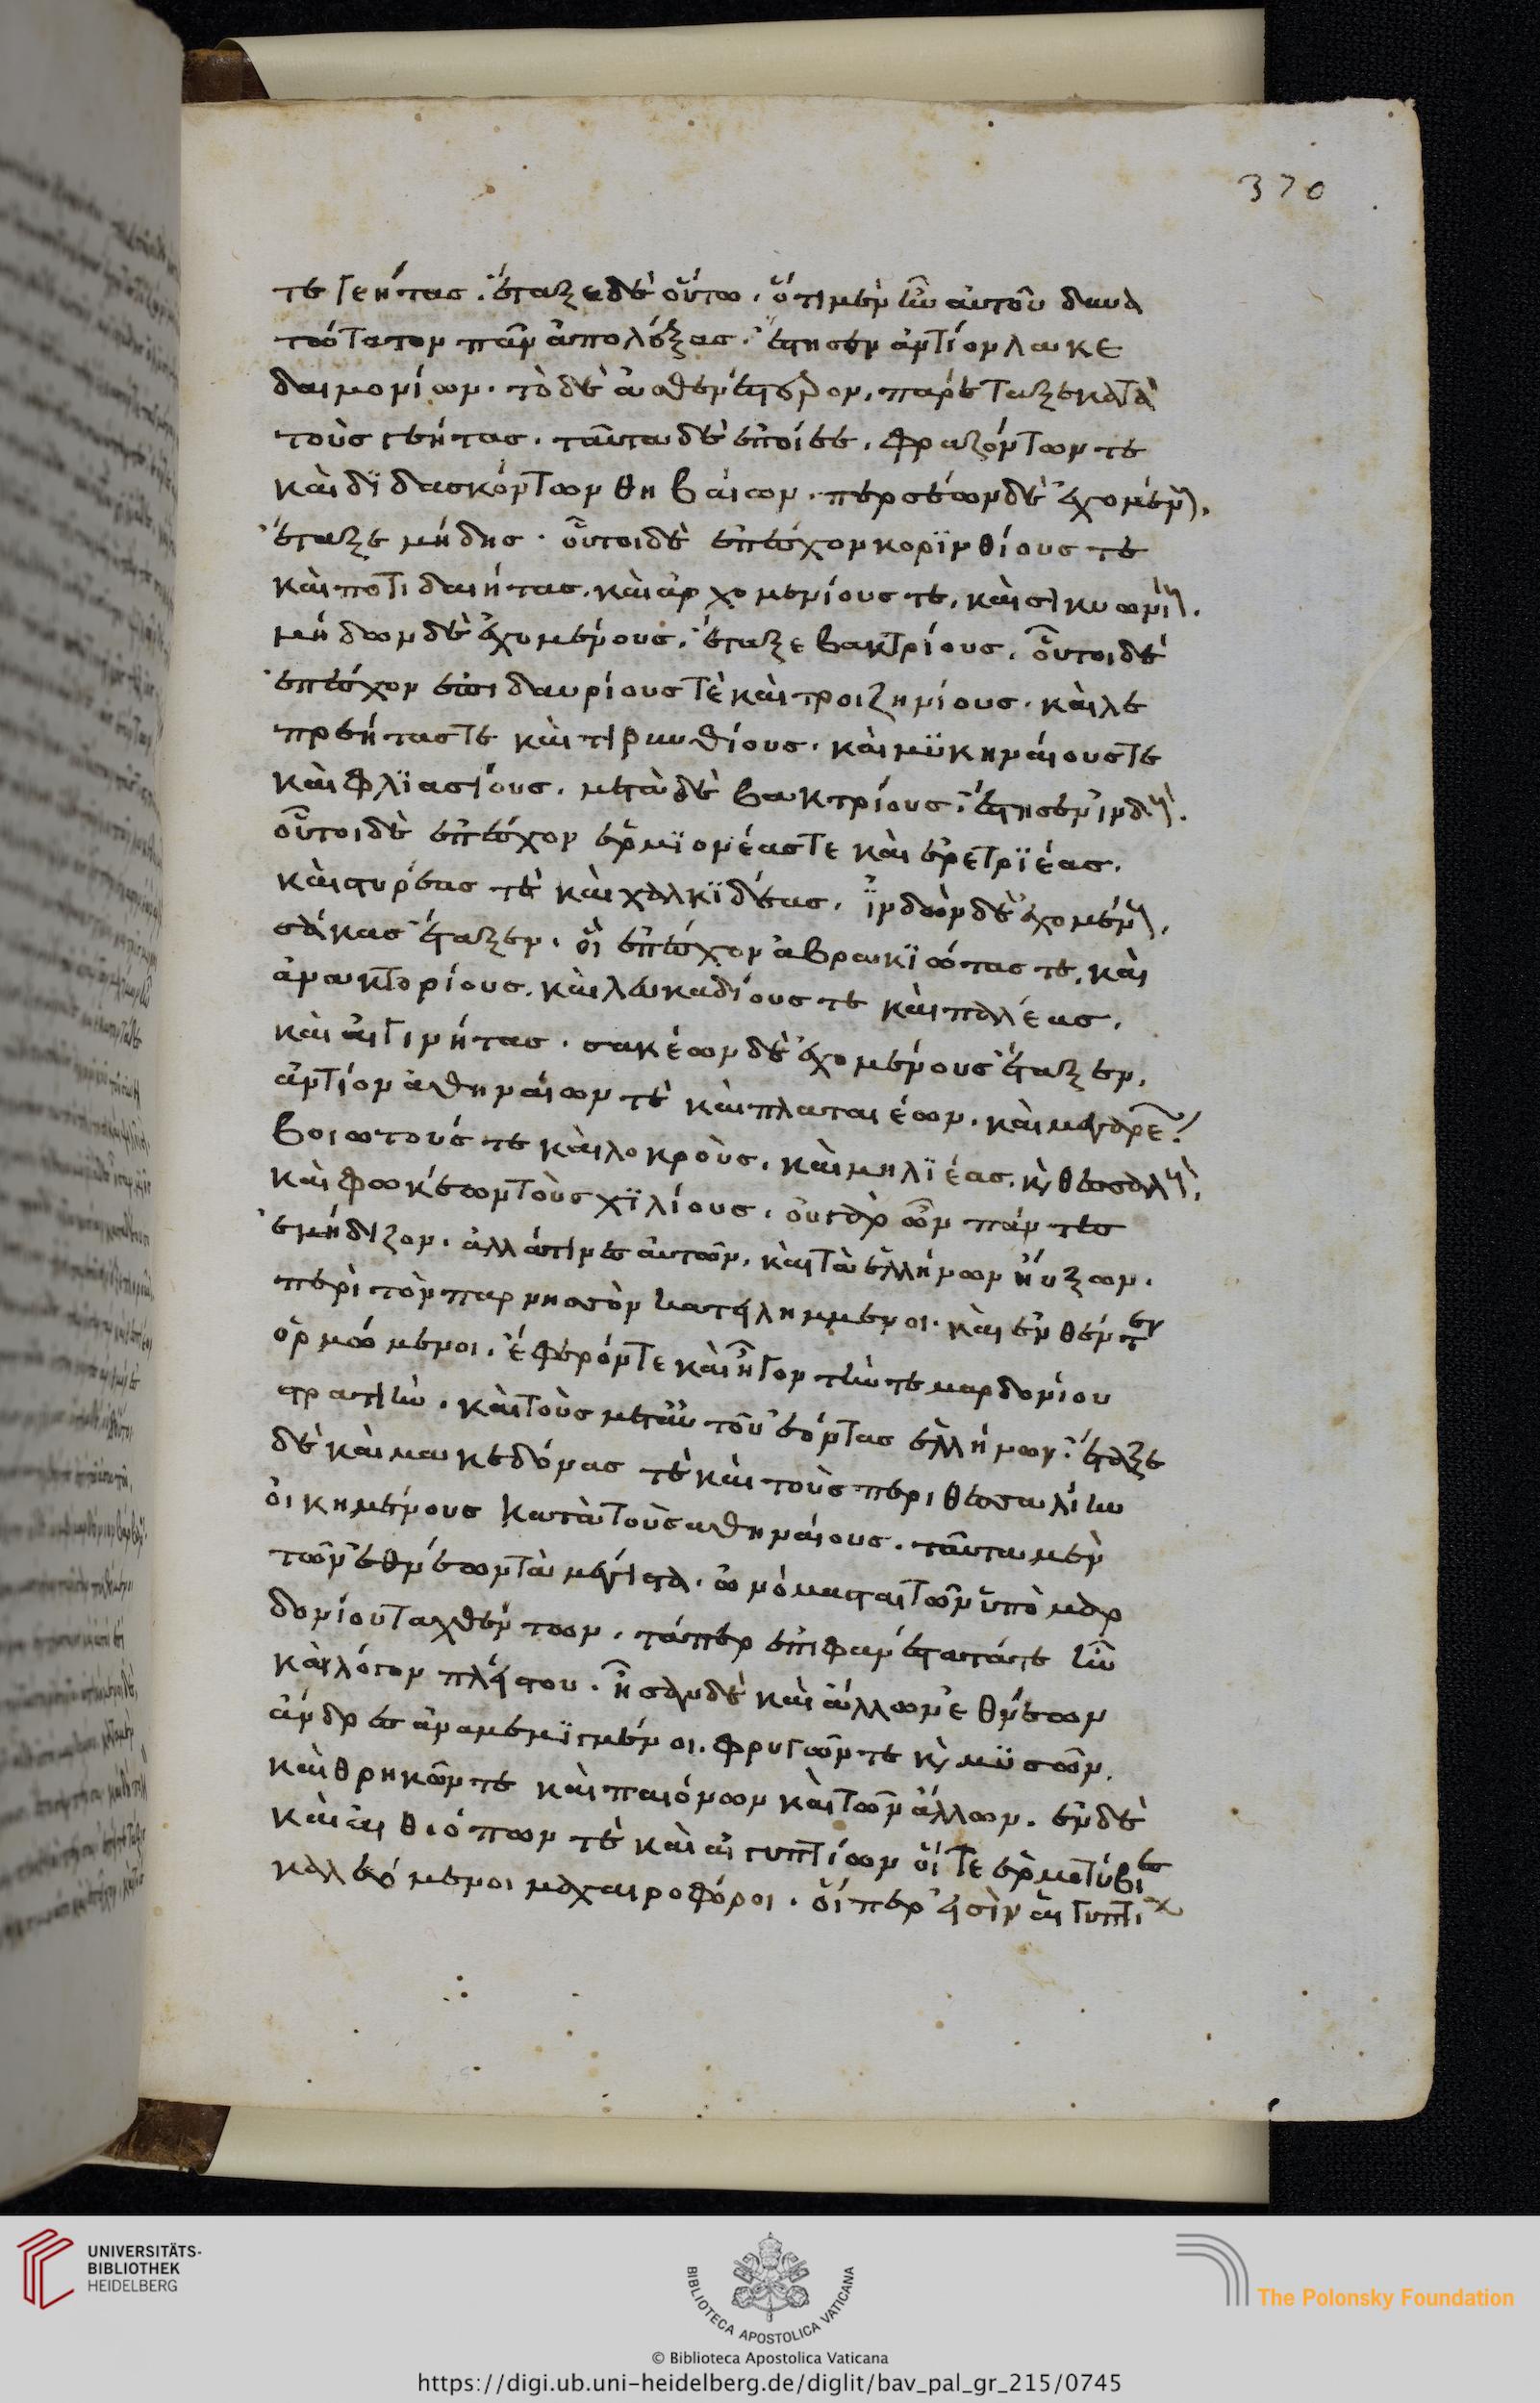 370
τεγεήτας. ἔταξε δὲ οὕτω. ὅτι μὲν ἦν αὐτοῦ δυνα
τώτατον πᾶν ἀπολέξας. ἔστησεν ἀντίον λακε
δαιμονίων. τὸ δὲ ἀσθενέστερον, παρέταξε κατὰ
τοὺς τεγεήτας. ταῦτα δὲ ἐποίεε, φραζόντων τε
καὶ διδασκόντων θηβαίων. περσέων δὲ ἐχομένους,
ἔταξε μήδους. οὗτοι δὲ ἐπέσχον κορϊνθίους τε
καὶ ποτιδαιήτας, καὶ ἀρχομενίους τε, καὶ σικυωνίους.
μήδων δὲ ἐχομένους, ἔταξε βακτρίους. οὗτοι δὲ
ἐπέσχον ἐπιδαυρίους τὲ καὶ τροιζηνίους. καὶ λε
πρεήτας τε καὶ τιρυνθίους. καὶ μϋκηναίους τε
καὶ φλϊασίους. μετὰ δὲ βακτρίους, ἔστησεν ἰνδούς.
οὗτοι δὲ ἐπέσχον ἑρμϊονέας τε καὶ ἐρετρϊέας.
καὶ στυρέας τὲ καὶ χαλκϊδέας. ἰνδῶν δὲ ἐχομένους,
σάκας ἔταξεν. οἳ ἐπέσχον ἀβρακϊώτας τε, καὶ
ἀνακτορίους. καὶ λευκαδίους τε καὶ παλέας.
καὶ αἰγινήτας. σακέων δὲ ἐχομένους ἔταξεν,
ἀντίον ἀθηναίων τὲ καὶ πλαταιέων. καὶ μεγαρέων
βοιωτούς τε καὶ λοκρούς, καὶ μηλϊέας, κ θεσσαλούς,
καὶ φωκέων τοὺς χϊλίους. οὐ γὰρ ὦν πάντες
ἐμήδιζον. ἀλλά τινες αὐτῶν, καὶ τὰ ἑλλήνων ηὖξον.
περὶ τὸν παρνησὸν κατειλημμένοι. καὶ ἐνθεῦτεν
ὁρμώμενοι. ἔφερόν τε καὶ ἦγον τήν τε μαρδονίου
στρατιὴν. καὶ τοὺς μετ' αὐτοῦ ἐόντας ἑλλήνων. ἔταξε
δὲ καὶ μακεδόνας τὲ καὶ τοὺς περὶ θεσσαλίην
οἰκημένους κατὰ τοὺς ἀθηναίους. ταῦτα μὲν
τῶν ἐθνέων τὰ μέγιστα. ὠνόμασται τῶν ὑπὸ μαρ
δονίου ταχθέντων. τάπερ ἐπιφανέστατά τε ἦν
καὶ λόγου πλείστου. ἦσαν δὲ καὶ ἄλλων ἐθνέων
ἄνδρες ἀναμεμϊγμένοι. φρυγῶν τε κ μϋσῶν.
καὶ θρηκῶν τε καὶ παιόνων καὶ τῶν ἄλλων. ἐν δὲ
καὶ αἰθιόπων τὲ καὶ αἰγυπτίων οἵ τε ἑρμοτύβιες
καλεύμενοι μαχαιροφόροι. οἵπερ εἰσὶν αἰγυπτί
UNIVERSITÄTS-
BIBLIOTHEK
HEIDELBERG
BIBLIOTECA APOSTOLICA VATICANA
The Polonsky Foundation
© Biblioteca Apostolica Vaticana
https://digi.ub.uni-heidelberg.de/diglit/bav_pal_gr_215/0745